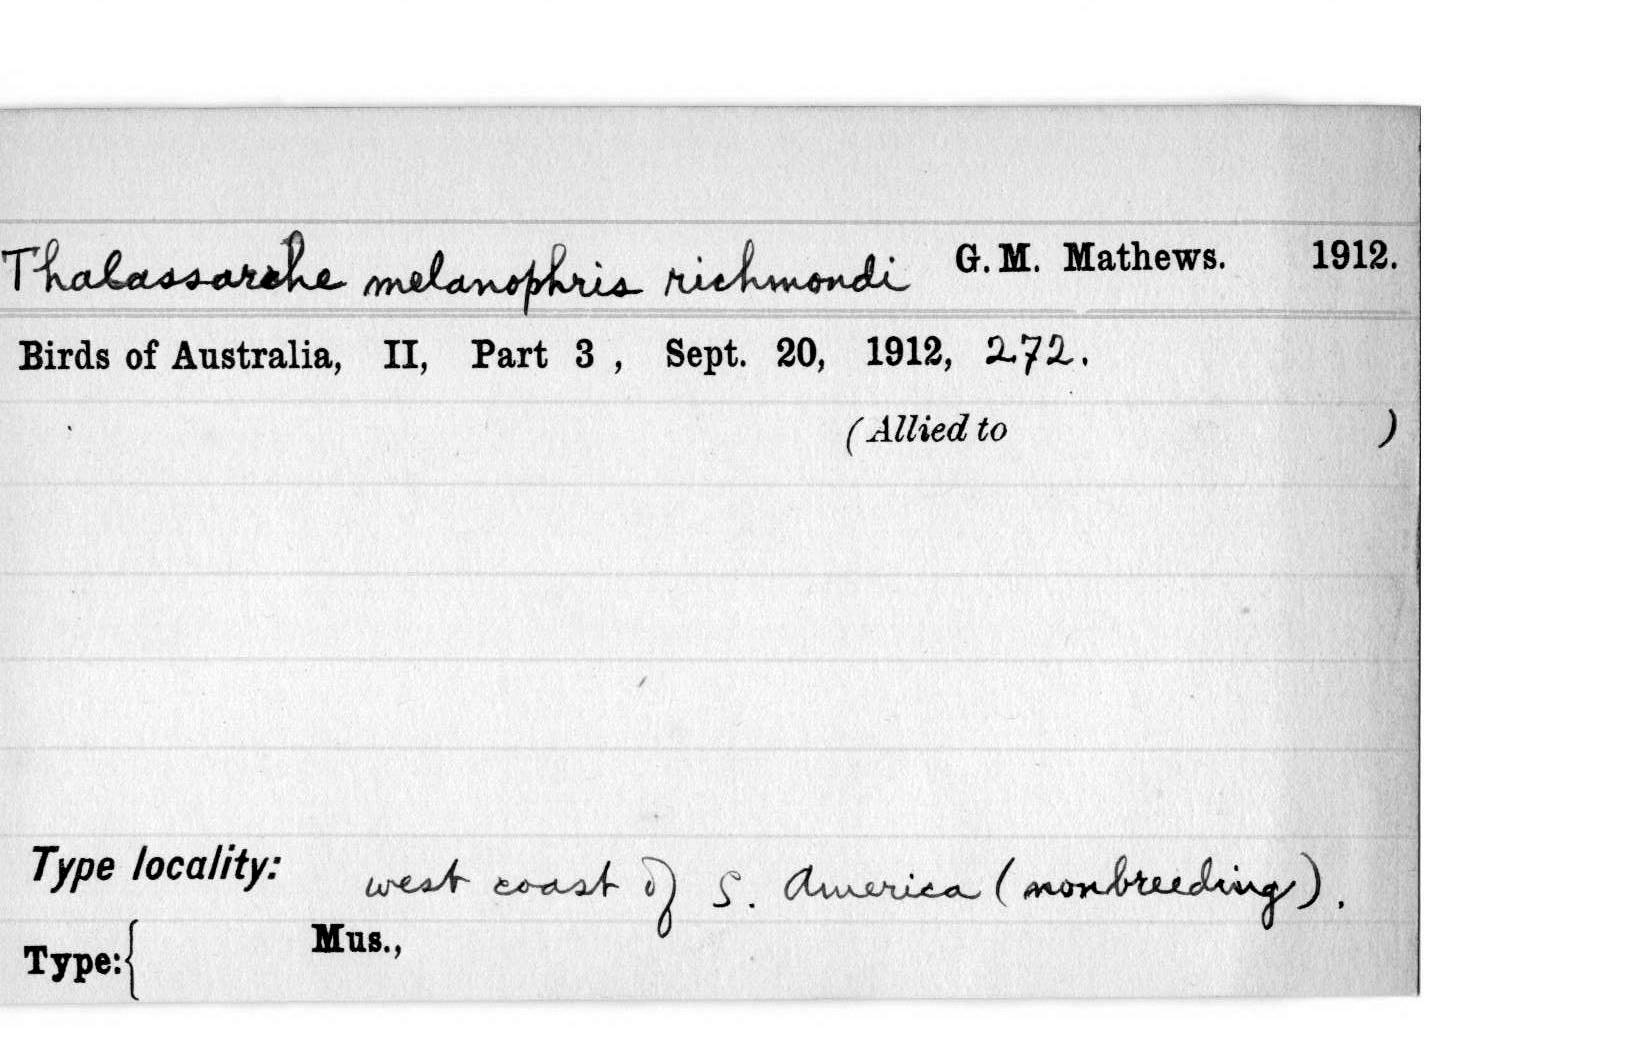 Thalassarche melanophris richmondi G. M. Mathews. 1912.
Birds of Australia, II, Part 3 , Sept. 20, 1912, 272.
(Allied to )
Type locality: west coast of S. America (nonbreeding).
Type:{ Mus.,